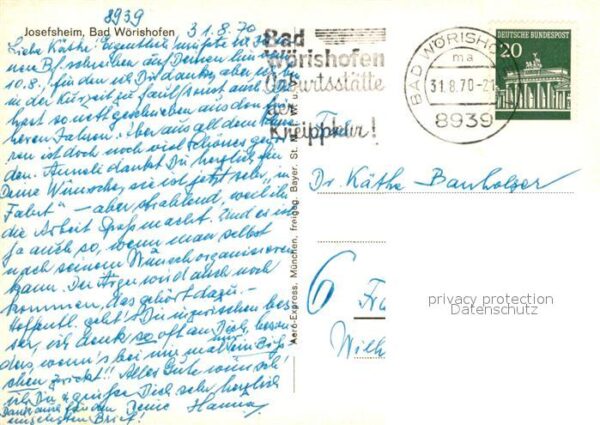 8939
Josefsheim, Bad Wörishofen
31.8.70
Liebe Käthe! Eigentlich müsste ich
nen Bf. schreiben auf Deinen hin
10.8. für den ich Dir danke, aber
in der Kurzeit zu faul, sonst
hast so nett geschrieben aus den
heren Jahren. Aber aus all dem
ren ist doch noch viel Schönes
den. Anneli dankt Du herzlich für
Deine Wünsche, sie ist jetzt sehr „in
Fahrt" – aber strahlend, weil ihr
die Arbeit Spaß macht. Und es ist
ja auch so, wenn man selbst
nach seinem Wunsch organisieren
kann. Der Ärger wird auch noch
kommen, das gehört dazu. –
Hoffentl. geht's Dir inzwischen bes-
ser, ich denk so oft an Dich, beson
ders, wenn's bei mir mal ein
zwickt!! Alles Gute wünsch'
ich Dir & grüße Dich sehr herzlich
Danke für den Deine Hanna
Brief!
Bad
Wörishofen
Geburtsstätte
der
Kneippkur!
BAD WÖRISHOFEN
ma
31.8.70-21
8939
DEUTSCHE BUNDESPOST
20
Frau
Dr. Käthe Banholzer
6
Wilh
Aero-Express, München, freigeg. Bayer. St. M. f. W. u. V.
privacy protection
Datenschutz